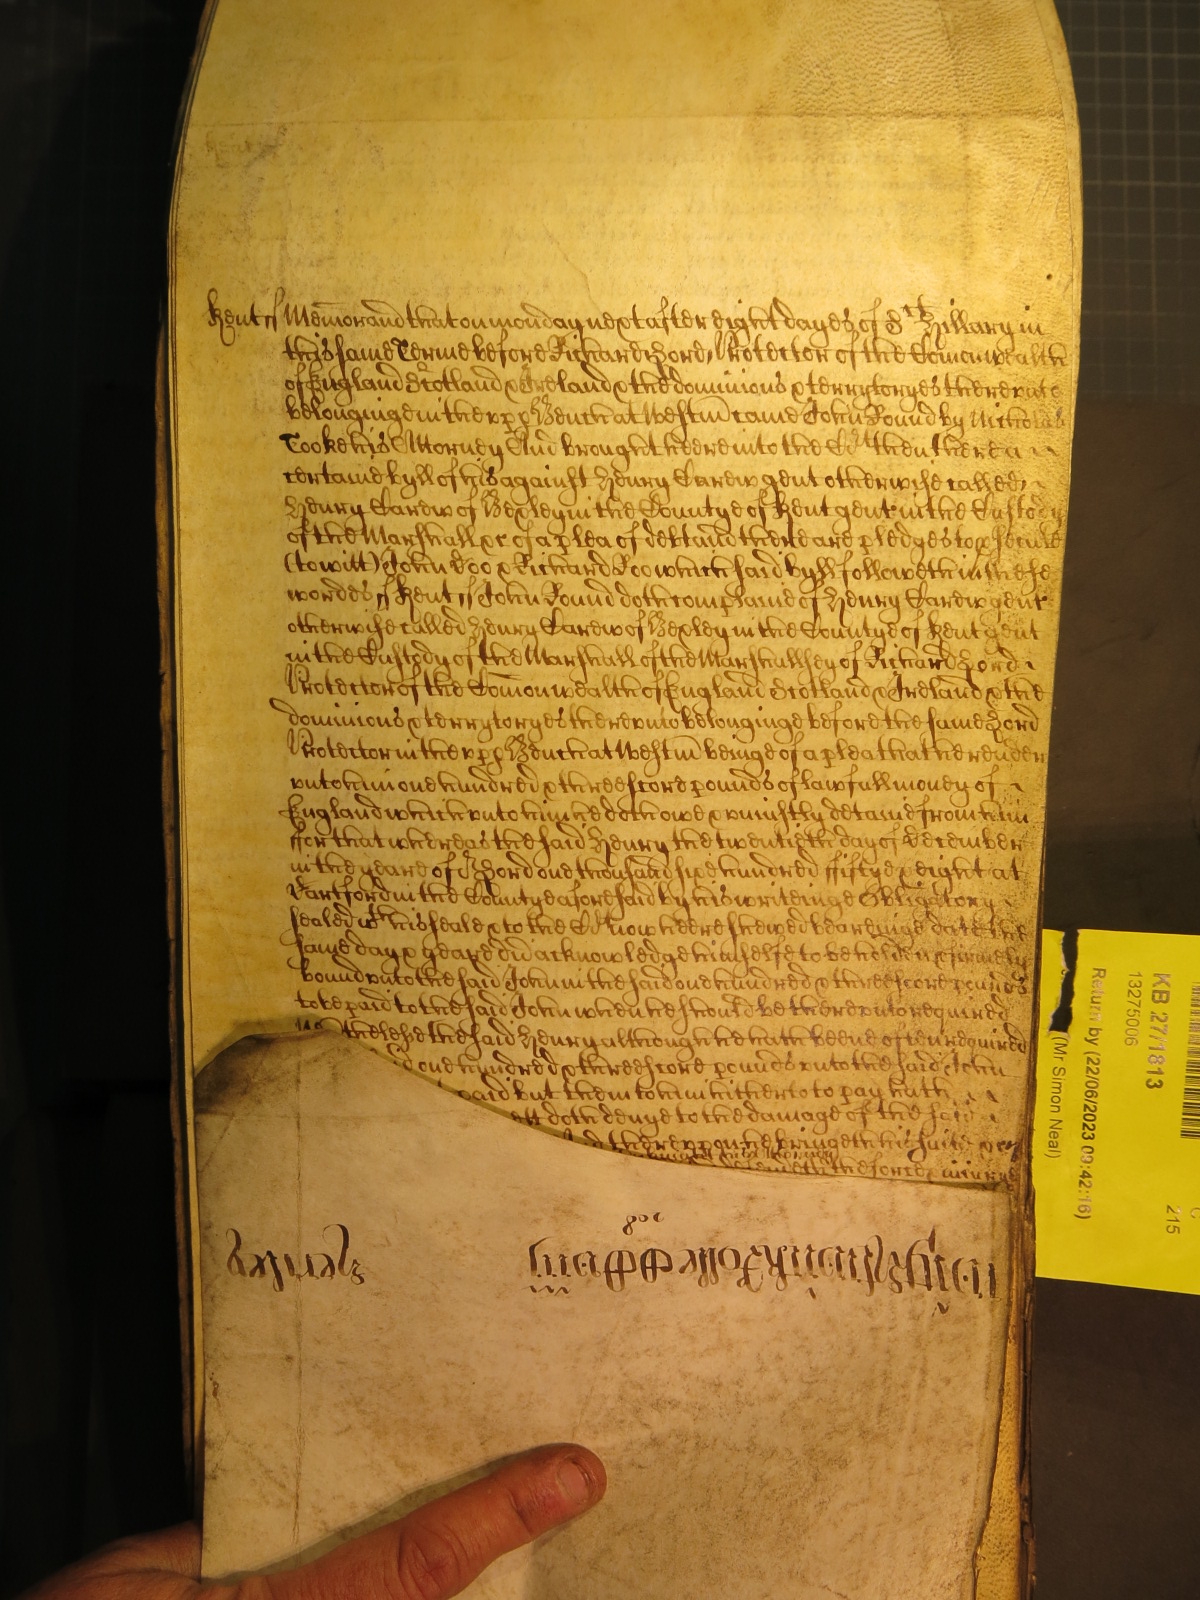 Kent ss Memorand that on monday next after eight dayes of St Hillary in
this same Terme before Richard Lord Protector of the Comonwealth
of England Scotland & Ireland & the dominions & terrytoryes thereunto
belonginge in the upp Bench at Westm came John Round by Nicholas
Cooke his Attorney And brought heere into the Ct then there a
certaine byll of his against Henry Carew gent otherwise called
Henry Carew of Bexley in the Countye of Kent gent in the Custody
of the Marshall &c of a plea of debt and there are pledges to psecute
(to witt) John Doo & Richard Roo which said byll followeth in these
wordes ss Kent ss John Round doth complaine of Henry Carew gent
otherwise called Henry Carew of Bexley in the Countye of Kent gent
in the Custody of the Marshall of the Marshallsey of Richard Lord
Protector of the Comonwealth of England Scotland & Ireland & the
dominions & terrytoryes thereunto belonginge before the same Lord
Protector in the upp Bench at Westm beinge of a plea that he render
unto him one hundred & threescore pounds of lawfull money of
England which unto him he doth owe & uniustly detaine from him
ffor that whereas the said Henry the twentieth day of December
in the yeare of or Lord one thousand six hundred ffiftye & eight at
Dartford in the County aforesaid by his writeinge Obligatory
sealed wth his seale & to the Ct now heere shewed bearinge date the
same day & yeare did acknowledge himselfe to be holden & firmely
bound unto the said John in the said one hundred & threescore pounds
to be paid to the said John when he should be thereunto required
thelesse the said Henry although he hath beene often required
one hundred & threescore pounds unto the said John
paid but them to him hitherto to pay hath
doth denye to the damage of the said
thereuppon he bringeth his suite
defendeth the force & iniurye
KB 27/1813
13275006
Return by (22/06/2023 09:42:16)
(Mr Simon Neal)
C
215